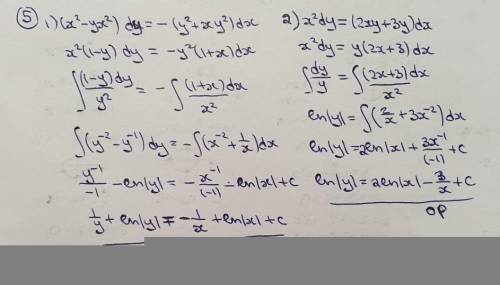 ⑤ 1) (x²-yx²) dy = - (y²+xy²)dx
x²(1-y) dy = -y²(1+x)dx
∫(1-y)dy/y² = -∫(1+x)dx/x²
∫(y⁻²-y⁻¹)dy = -∫(x⁻²+1/x)dx
y⁻¹/-1 - ln|y| = -x⁻¹/(-1) - ln|x|+c
1/y + ln|y| = -1/x + ln|x| + c
2) x²dy = (2xy+3y)dx
x²dy = y(2x+3)dx
∫dy/y = ∫(2x+3)dx/x²
ln|y| = ∫(2/x + 3x⁻²)dx
ln|y| = 2ln|x| + 3x⁻¹/(-1) + c
ln|y| = 2ln|x| - 3/x + c
OP